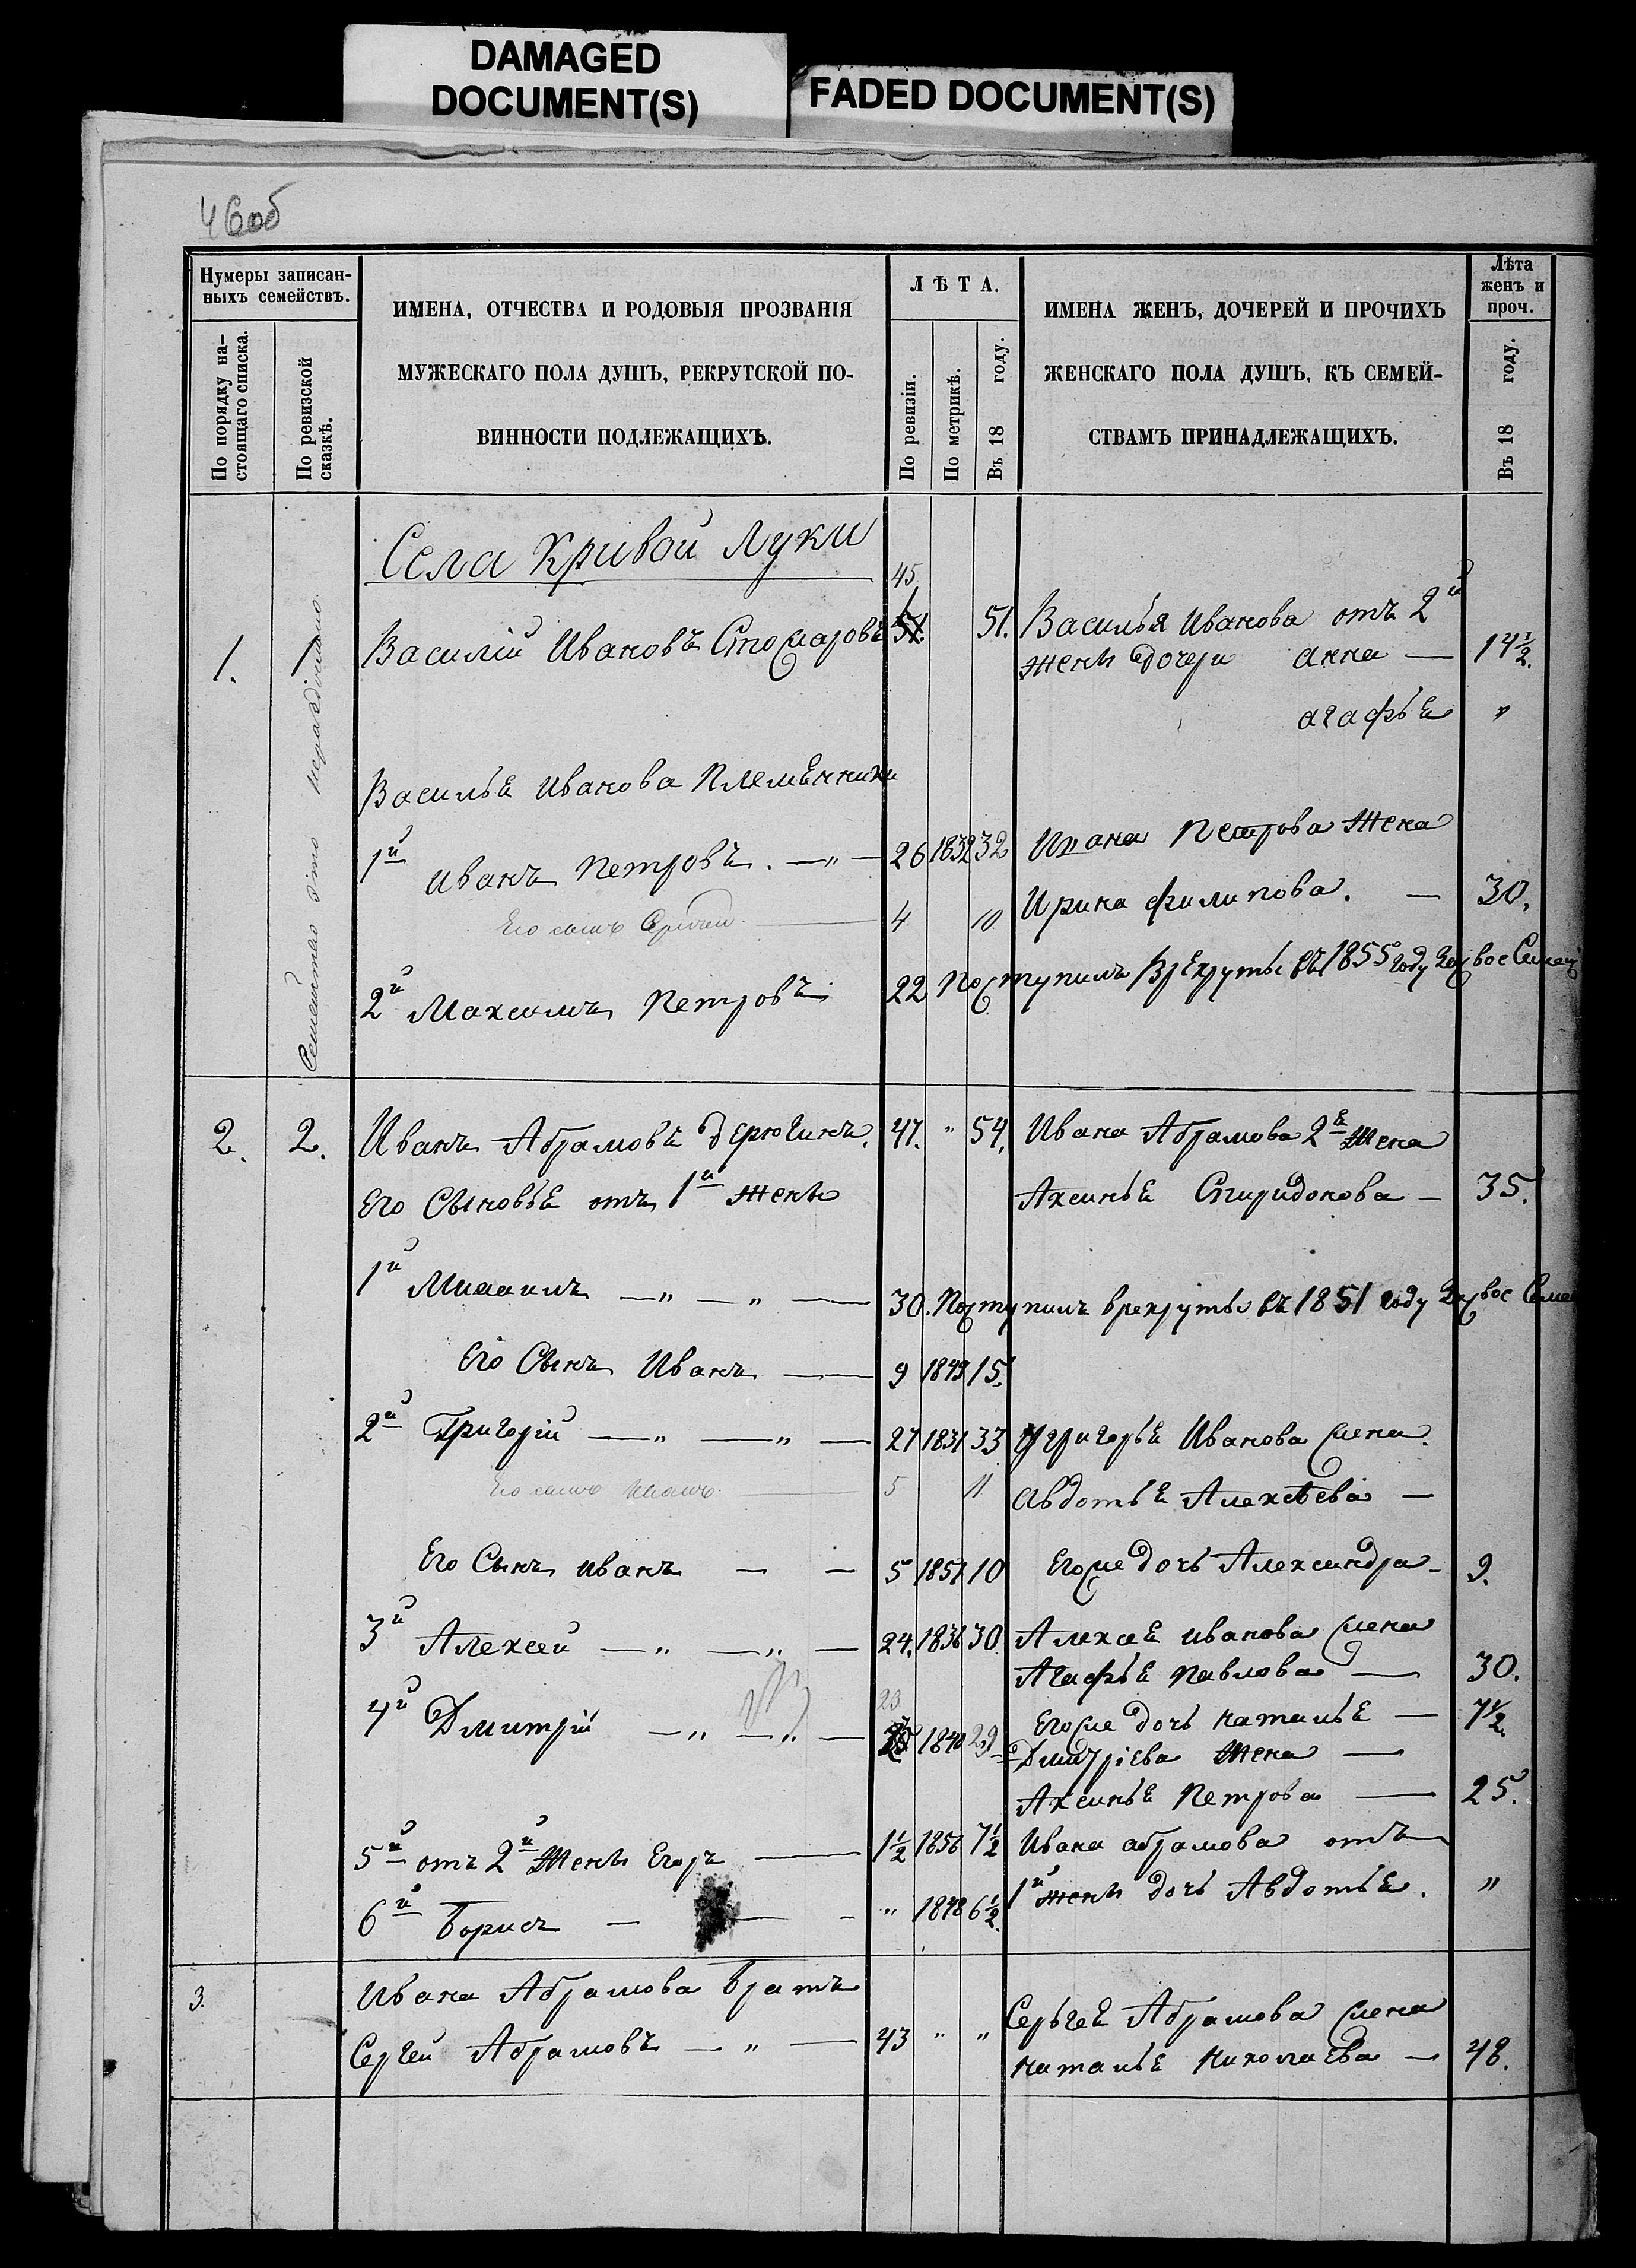 DAMAGED
DOCUMENT(S)
FADED DOCUMENT(S)
46об
Нумеры записан-
ныхъ семействъ.
По порядку на-
стоящаго списка.
По ревизской
сказкѣ.
ИМЕНА, ОТЧЕСТВА И РОДОВЫЯ ПРОЗВАНІЯ
МУЖЕСКАГО ПОЛА ДУШЪ, РЕКРУТСКОЙ ПО-
ВИННОСТИ ПОДЛЕЖАЩИХЪ.
ЛѢТА.
По ревизіи.
По метрикѣ.
Въ 18 году.
ИМЕНА ЖЕНЪ, ДОЧЕРЕЙ И ПРОЧИХЪ
ЖЕНСКАГО ПОЛА ДУШЪ, КЪ СЕМЕЙ-
СТВАМЪ ПРИНАДЛЕЖАЩИХЪ.
Лѣта
женъ и
проч.
Въ 18 году.
Села Кривой Луки
45
1. 1. Василій Ивановъ 51. 51. Василья Иванова отъ 2й
жены дочери анна — 14½.
агафья "
Семейство это
Василья Иванова Племянники
1й Иванъ Петровъ. —"— 26 1832 32 Ивана Петрова Жена
Его сынъ — 4 10 Ирина филипова. — 30.
2й Максимъ Петровъ 22 Поступилъ врекруты въ 1855 году
2. 2. Иванъ Абрамовъ дерюгинъ. 47. " 54. Ивана Абрамова 2я Жена
Его Сыновья отъ 1й жены Аксинья Спиридонова — 35.
1й Михаилъ —"—"— 30. Поступилъ врекруты въ 1851 году
Его Сынъ Иванъ — 9 1849 15.
2й Григорій —"—"— 27 1831 33 Григорья Иванова жена.
Его сынъ — 5 11 Авдотья Алексѣева —
Его Сынъ иванъ — — 5 1851 10 Егоже дочь Александра — 9.
3й Алексей —"—"— 24. 1836 30 Алексея иванова жена
Агафья павлова — 30.
23
4й Дмитрій —"—"— 1840 29 Егоже дочь наталья — 7½
Дмитріева Жена —
Аксинья Петрова — 25.
5й отъ 2й Жены Егоръ — 1½ 1856 7½ Ивана абрамова отъ
6й Борисъ — " 1848 6½. 1й жены дочь Авдотья. "
3. Ивана Абрамова Братъ
Сергей Абрамовъ —"— 43 " " Сергея Абрамова жена
наталья николаева — 48.